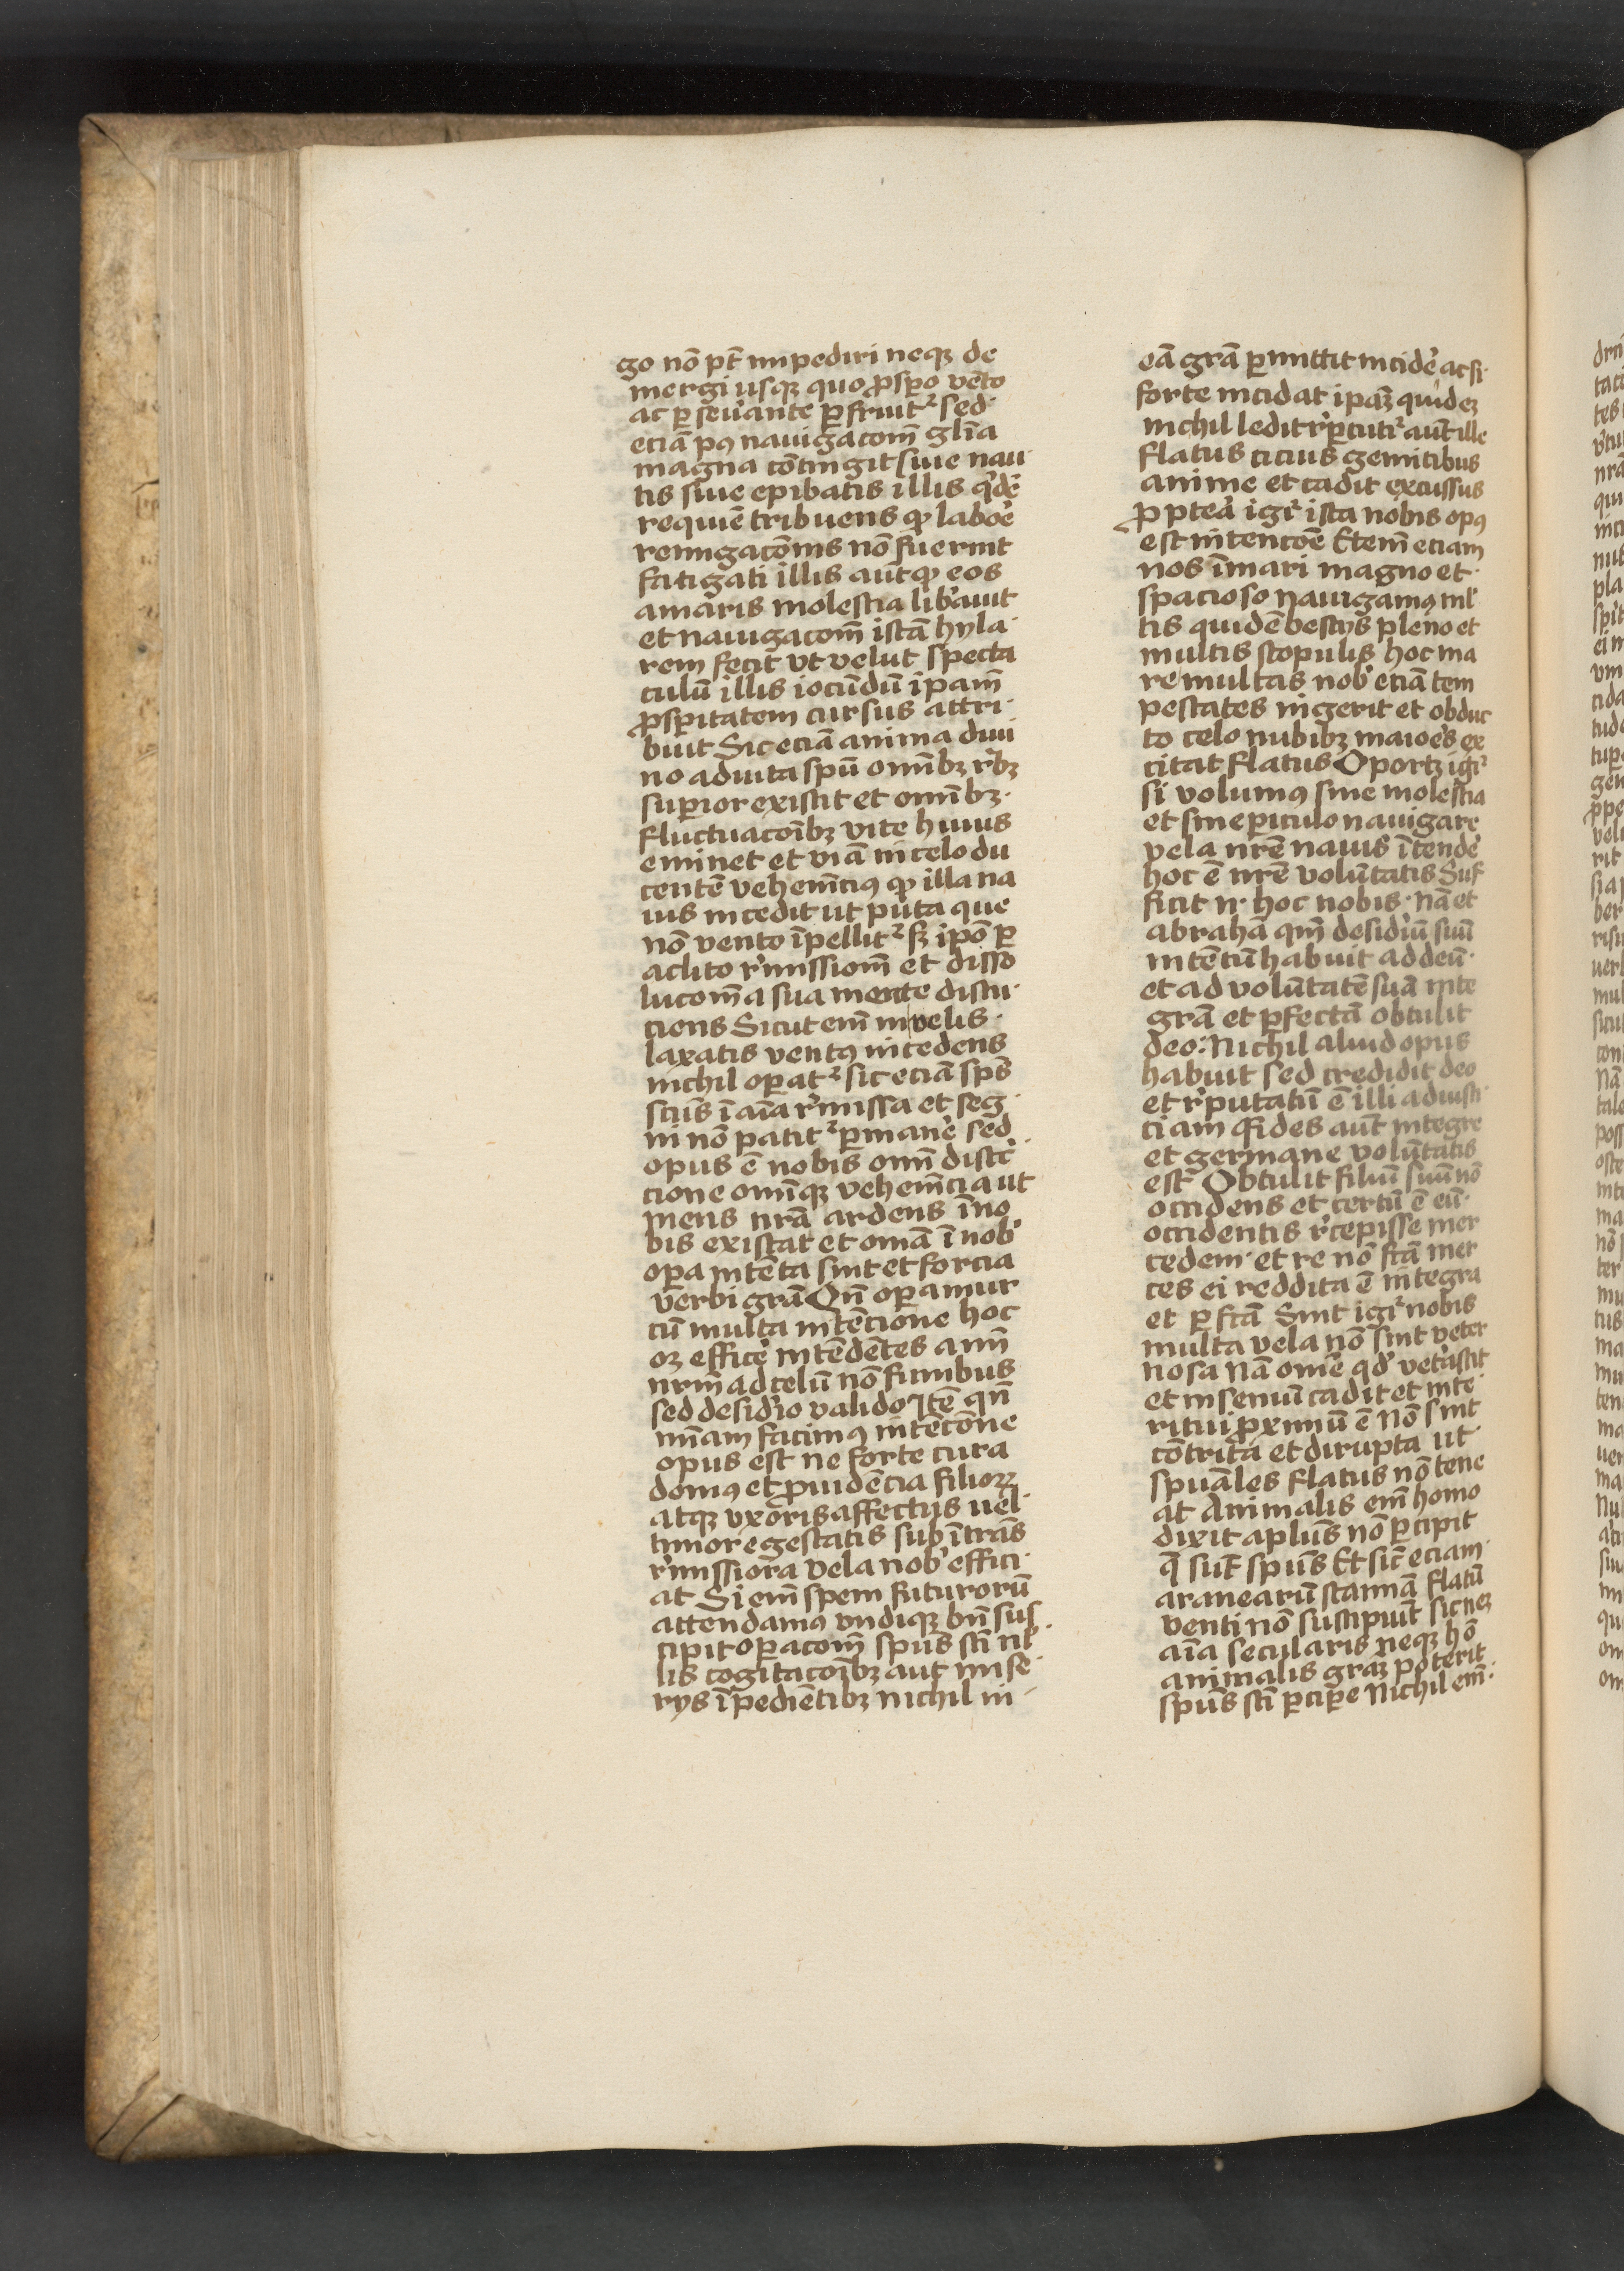 go nō pt̄ impediri neqꝫ de
mergi usqꝫ quo ꝓspo vēto
ac ꝑ seuante ꝑfruit² sed·
eciā pꝰ nauigacom̄ gl̄ia
magna cōtingit siue nau
tis siue epibatis illis q̇dē
requiē tribuens ꝙ laboē
remigacōnis nō fuerint
fatigati illis aūt ꝙ eos
amaris molestia lib̓auit
et nauigacom̄ istā hyla·
rem fecit vt velut specta
culū illis iocūdū ipam̄
ꝓsꝑitatem cursus attri·
buit Sic eciā anima diui
no adiuta spū om̄ibꝫ r̓bꝫ
suꝑior existit et om̄ibꝫ·
fluctuacōibꝫ vite huius
eminet et viā in celo du
centē vehem̄ciꝰ ꝙ illa na
uis incedit ut puta que
nō vento īpellit² sꝫ ipō ꝑ
aclito r̓missiom̄ et disso
lucom̄ a sua mente discu·
ciens Sicut em̄ in velis·
laxatis ventꝰ incedens
nichil oꝑat² sic eciā sp̄s
sc̄us ī aīa r̓missa et seg·
ni nō patit² ꝑmanē sed
opus ē nobis om̄i distc̄
cione om̄iqꝫ vehem̄cia ut
mens nr̄a ardens ī no
bis existat et om̄a ī nob̓
oꝑa intēta sint et forcia
verbi grā Qn̄ oꝑamur
cū multa intēcione hoc
oꝫ efficē intēdētes aīm̄
nrm̄ ad celū nō funibus
sed desid̓io valido Itē qn̄
mn̄am facimꝰ intēcōne
opus est ne forte cura
domꝰ et ꝓuidēcia filioꝝ
atqꝫ vxoris affectus uel·
timor egestatis subītrās
r̓missiora vela nob̓ effici·
at Si em̄ spem futurorū
attendamꝰ vndiqꝫ bn̄ sus
cipit oꝑacom̄ spūs sc̄i nl̓
lis cogitacōibꝫ aut mise·
rys īpediētibꝫ nichil in
eā grā ꝑmittit incidē ac si·
forte incidat ipaꝫ quidē
nichil ledit r̓ꝑcuti² aūt ille
flatus cicius gemitibus
anime et cadit excussus
ꝓpteā igī ista nobis opꝰ
est intencōe Etem̄ eciam
nos ī mari magno et·
spacioso nauigamꝰ ml̓
tis quidē bestys pleno et
multis scopulis hoc ma
re multas nob̓ eciā tem
pestates ingerit et obduc
to celo nubibꝫ maioēs ex
citat flatus Oportꝫ igi²
si volumꝰ sine molestia
et sine ꝑiculo nauigare
vela nr̄e nauis ītendē
hoc ē nr̄e volūtatis Suf
ficit n̄· hoc nobis· nā et
abrahā qm̄ desidiū suū
intētū habuit ad deū·
et ad volūtatē suā inte
grā et ꝑfectā obtulit
deo: Nichil aliud opus
habuit sed credidit deo
et r̓putatū ē illi ad iusti·
ciam Fides aūt integre
et germane volūtatis
est Obtulit filiū suū nō
occidens et certū ē eū·
occidentis r̓cepisse mer
cedem· et re nō fc̄ā mer
ces ei reddita ē integra
et ꝑfc̄ā Sint igī² nobis
multa vela nō sint veter
nosa Nā om̄e qd̓ vet̓ascit
et in seniū cadit et inte·
ritui ꝓximū ē Nō sint
cōtrita et dirupta ut·
spūales flatus nō tene
at Animalis em̄ homo
dixit aplūs nō ꝑcipit
q̄ sūt spūs Et sic̄ eciam·
aranearū stannā flatū
venti nō suscipiūt sic neꝫ
aīa secularis neqꝫ hō
animalis graꝫ poterit
spūs sc̄i ꝑciꝑe Nichil em̄·